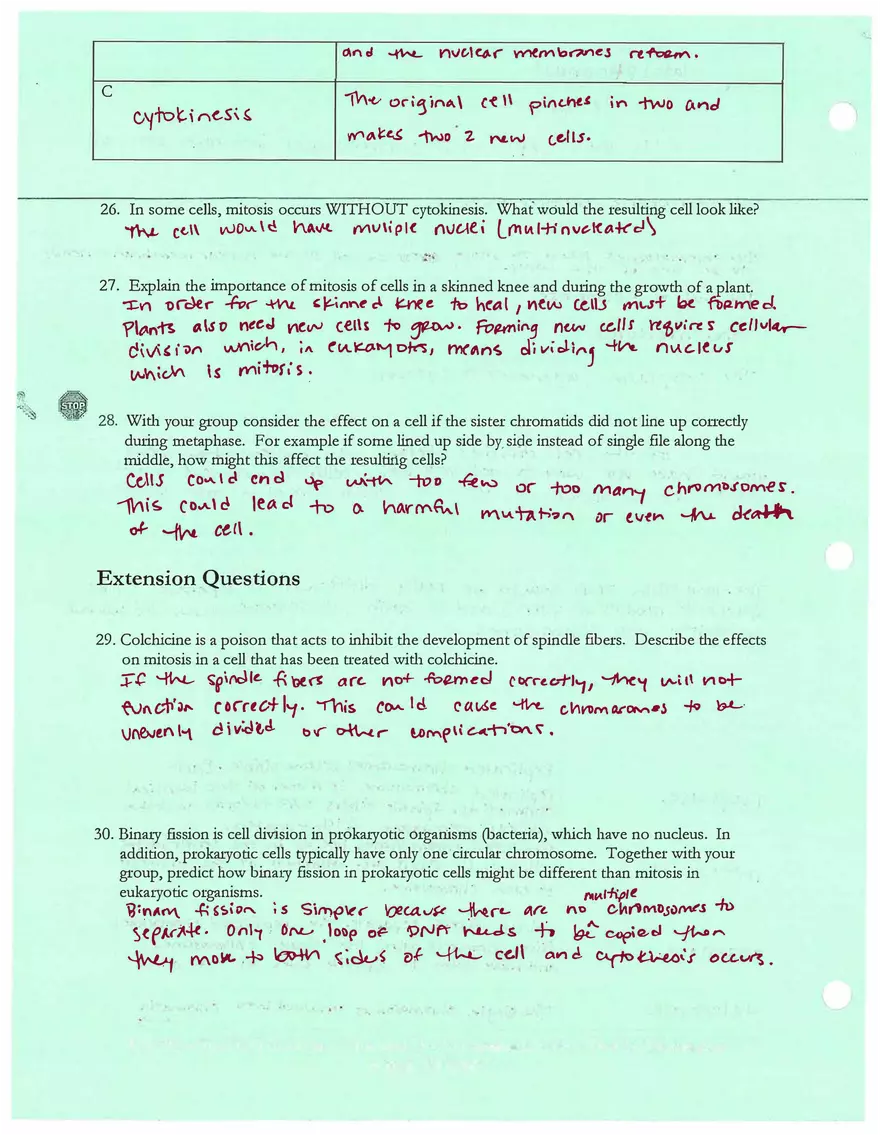 and the nuclear membranes reform.
C
cytokinesis
The original cell pinches in two and
makes two 2 new cells.
26. In some cells, mitosis occurs WITHOUT cytokinesis. What would the resulting cell look like?
The cell would have muliple nuclei (multinucleated)
27. Explain the importance of mitosis of cells in a skinned knee and during the growth of a plant.
In order for the skinned knee to heal, new cells must be formed.
Plants also need new cells to grow. Forming new cells requires cellular
division which, in eukaryotes, means dividing the nucleus
which is mitosis.
STOP
28. With your group consider the effect on a cell if the sister chromatids did not line up correctly
during metaphase. For example if some lined up side by side instead of single file along the
middle, how might this affect the resulting cells?
Cells could end up with too few or too many chromosomes.
This could lead to a harmful mutation or even the death
of the cell.
Extension Questions
29. Colchicine is a poison that acts to inhibit the development of spindle fibers. Describe the effects
on mitosis in a cell that has been treated with colchicine.
If the spindle fibers are not formed correctly, they will not
function correctly. This could cause the chromosomes to be
unevenly divided or other complications.
30. Binary fission is cell division in prokaryotic organisms (bacteria), which have no nucleus. In
addition, prokaryotic cells typically have only one circular chromosome. Together with your
group, predict how binary fission in prokaryotic cells might be different than mitosis in
eukaryotic organisms.
multiple
Binary fission is simpler because there are no chromosomes to
separate. Only one loop of DNA needs to be copied then
they move to both sides of the cell and cytokinesis occurs.